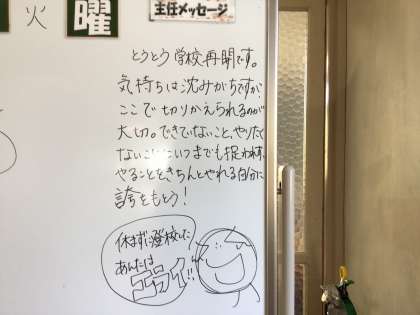 火
曜
主任メッセージ
とうとう学校再開です。
気持ちは沈みがちですが、
ここで切りかえられるのが
大切。できていないこと、やりたく
ないことにいつまでも捉われず、
やることをきちんとやれる自分に
誇をもとう!
休まずに登校した
あんたは
エライ!!